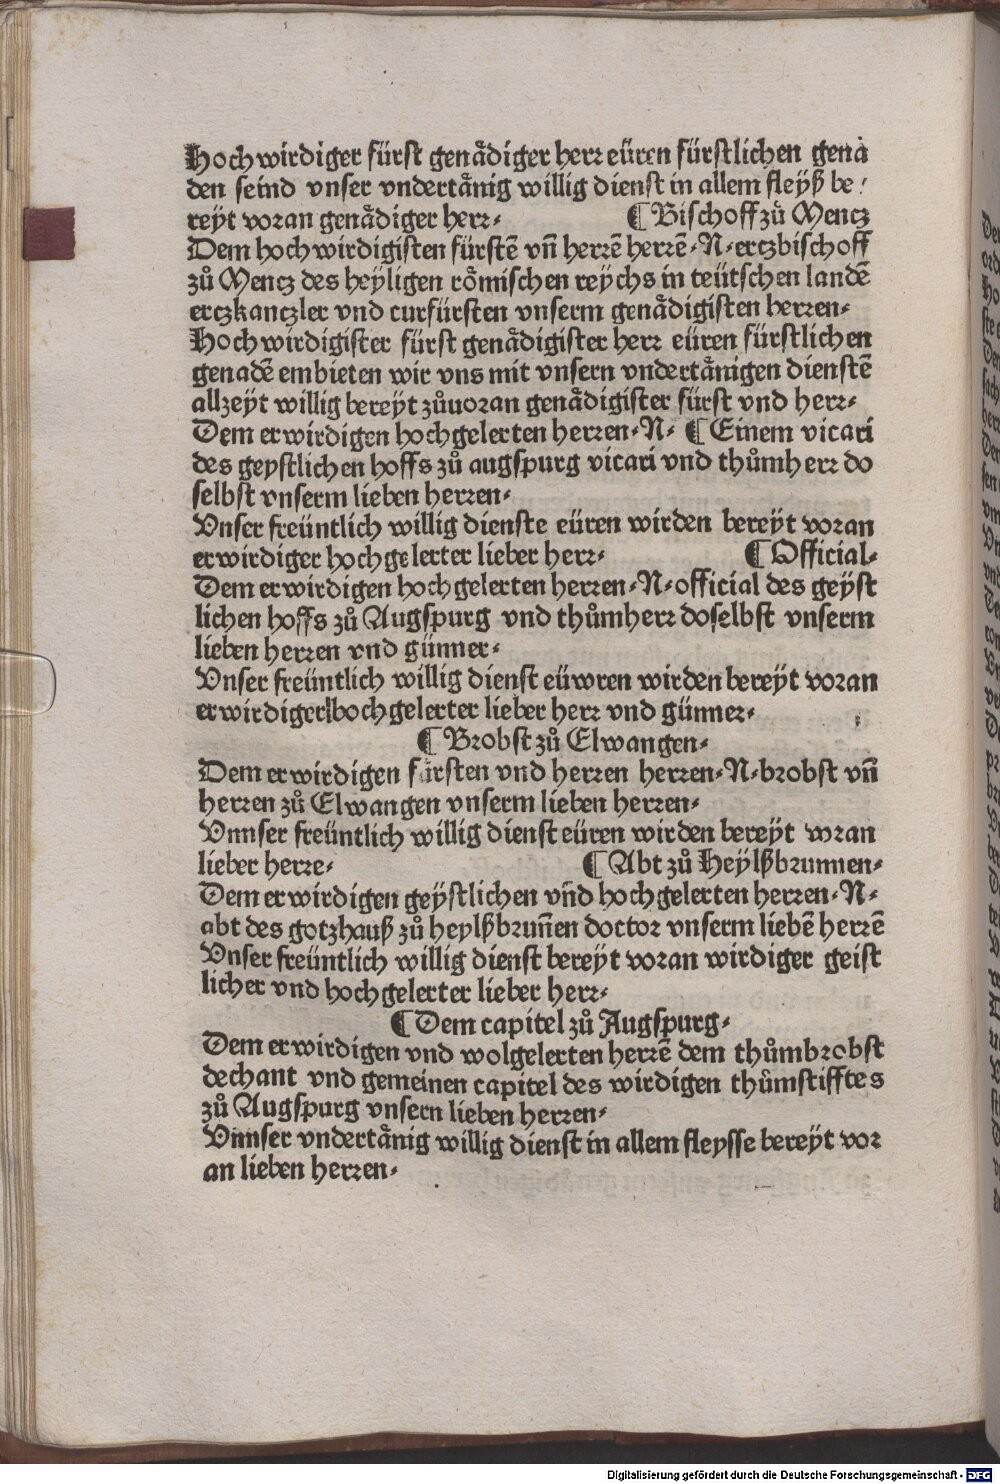 Hochwirdiger fürst genådiger herr eüren fürstlichen gena
den seind vnser vndertånig willig dienst in allem fleÿß be⸗
reÿt voran genådiger herr. ¶ Bischoff zů Mencz
Dem hochwirdigisten fürstē vn̄ herrē herrē. N. erczbischoff
zů Mencz des heÿligen römischen reychs in teütschen landē
erczkanczler vnd curfürsten vnserm genådigisten herren.
Hochwirdigister fürst genådigister herr eüren fürstlichen
genadē embieten wir vns mit vnsern vndertånigen dienstē
allzeÿt willig bereÿt zůuoran genådigister fürst vnd herr.
Dem erwirdigen hochgelerten herren. N. ¶ Einem vicari
des geystlichen hoffs zů augspurg vicari vnd thůmherr do
selbst vnserm lieben herren.
Vnser freüntlich willig dienste eüren wirden bereÿt voran
erwirdiger hochgelerter lieber herr. ¶ Official.
Dem erwirdigen hochgelerten herren. N. official des geÿst
lichen hoffs zů Augspurg vnd thůmherr doselbst vnserm
lieben herren vnd günner.
Vnser freüntlich willig dienst eüwren wirden bereÿt voran
erwirdiger hochgelerter lieber herr vnd günner.
¶ Brobst zů Elwangen.
Dem erwirdigen fürsten vnd herren herren. N. brobst vn̄
herren zů Elwangen vnserm lieben herren.
Vnnser freüntlich willig dienst eüren wirden bereÿt voran
lieber herre. ¶ Abt zů Heÿlßbrunnen.
Dem erwirdigen geÿstlichen vn̄d hochgelerten herren. N.
abt des gotzhauß zů heylßbrun̄en doctor vnserm liebē herrē
Vnser freüntlich willig dienst bereÿt voran wirdiger geist
licher vnd hochgelerter lieber herr.
¶ Dem capitel zů Augspurg.
Dem erwirdigen vnd wolgelerten herrē dem thůmbrobst
dechant vnd gemeinen capitel des wirdigen thůmstifftes
zů Augspurg vnsern lieben herren.
Vnnser vndertånig willig dienst in allem fleysse bereÿt vor
an lieben herren.
Digitalisierung gefördert durch die Deutsche Forschungsgemeinschaft - DFG